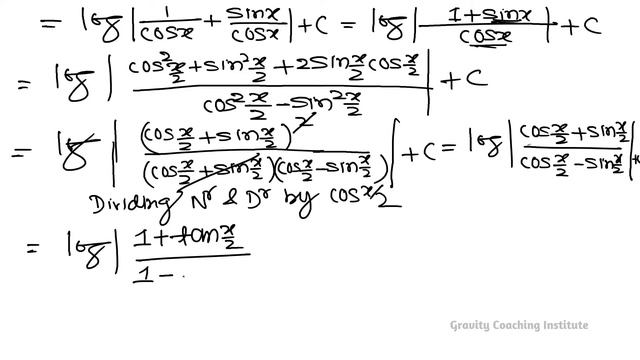 = log|1/cosx + sinx/cosx| + C = log|1+sinx/cosx| + C
= log|cos²x/2 + sin²x/2 + 2sinx/2 cosx/2 / cos²x/2 - sin²x/2| + C
= log|(cosx/2 + sinx/2)² / (cosx/2 + sinx/2)(cosx/2 - sinx/2)| + C = log|cosx/2 + sinx/2 / cosx/2 - sinx/2| +
Dividing Nr & Dr by cosx/2
= log|1+tanx/2 / 1-
Gravity Coaching Institute